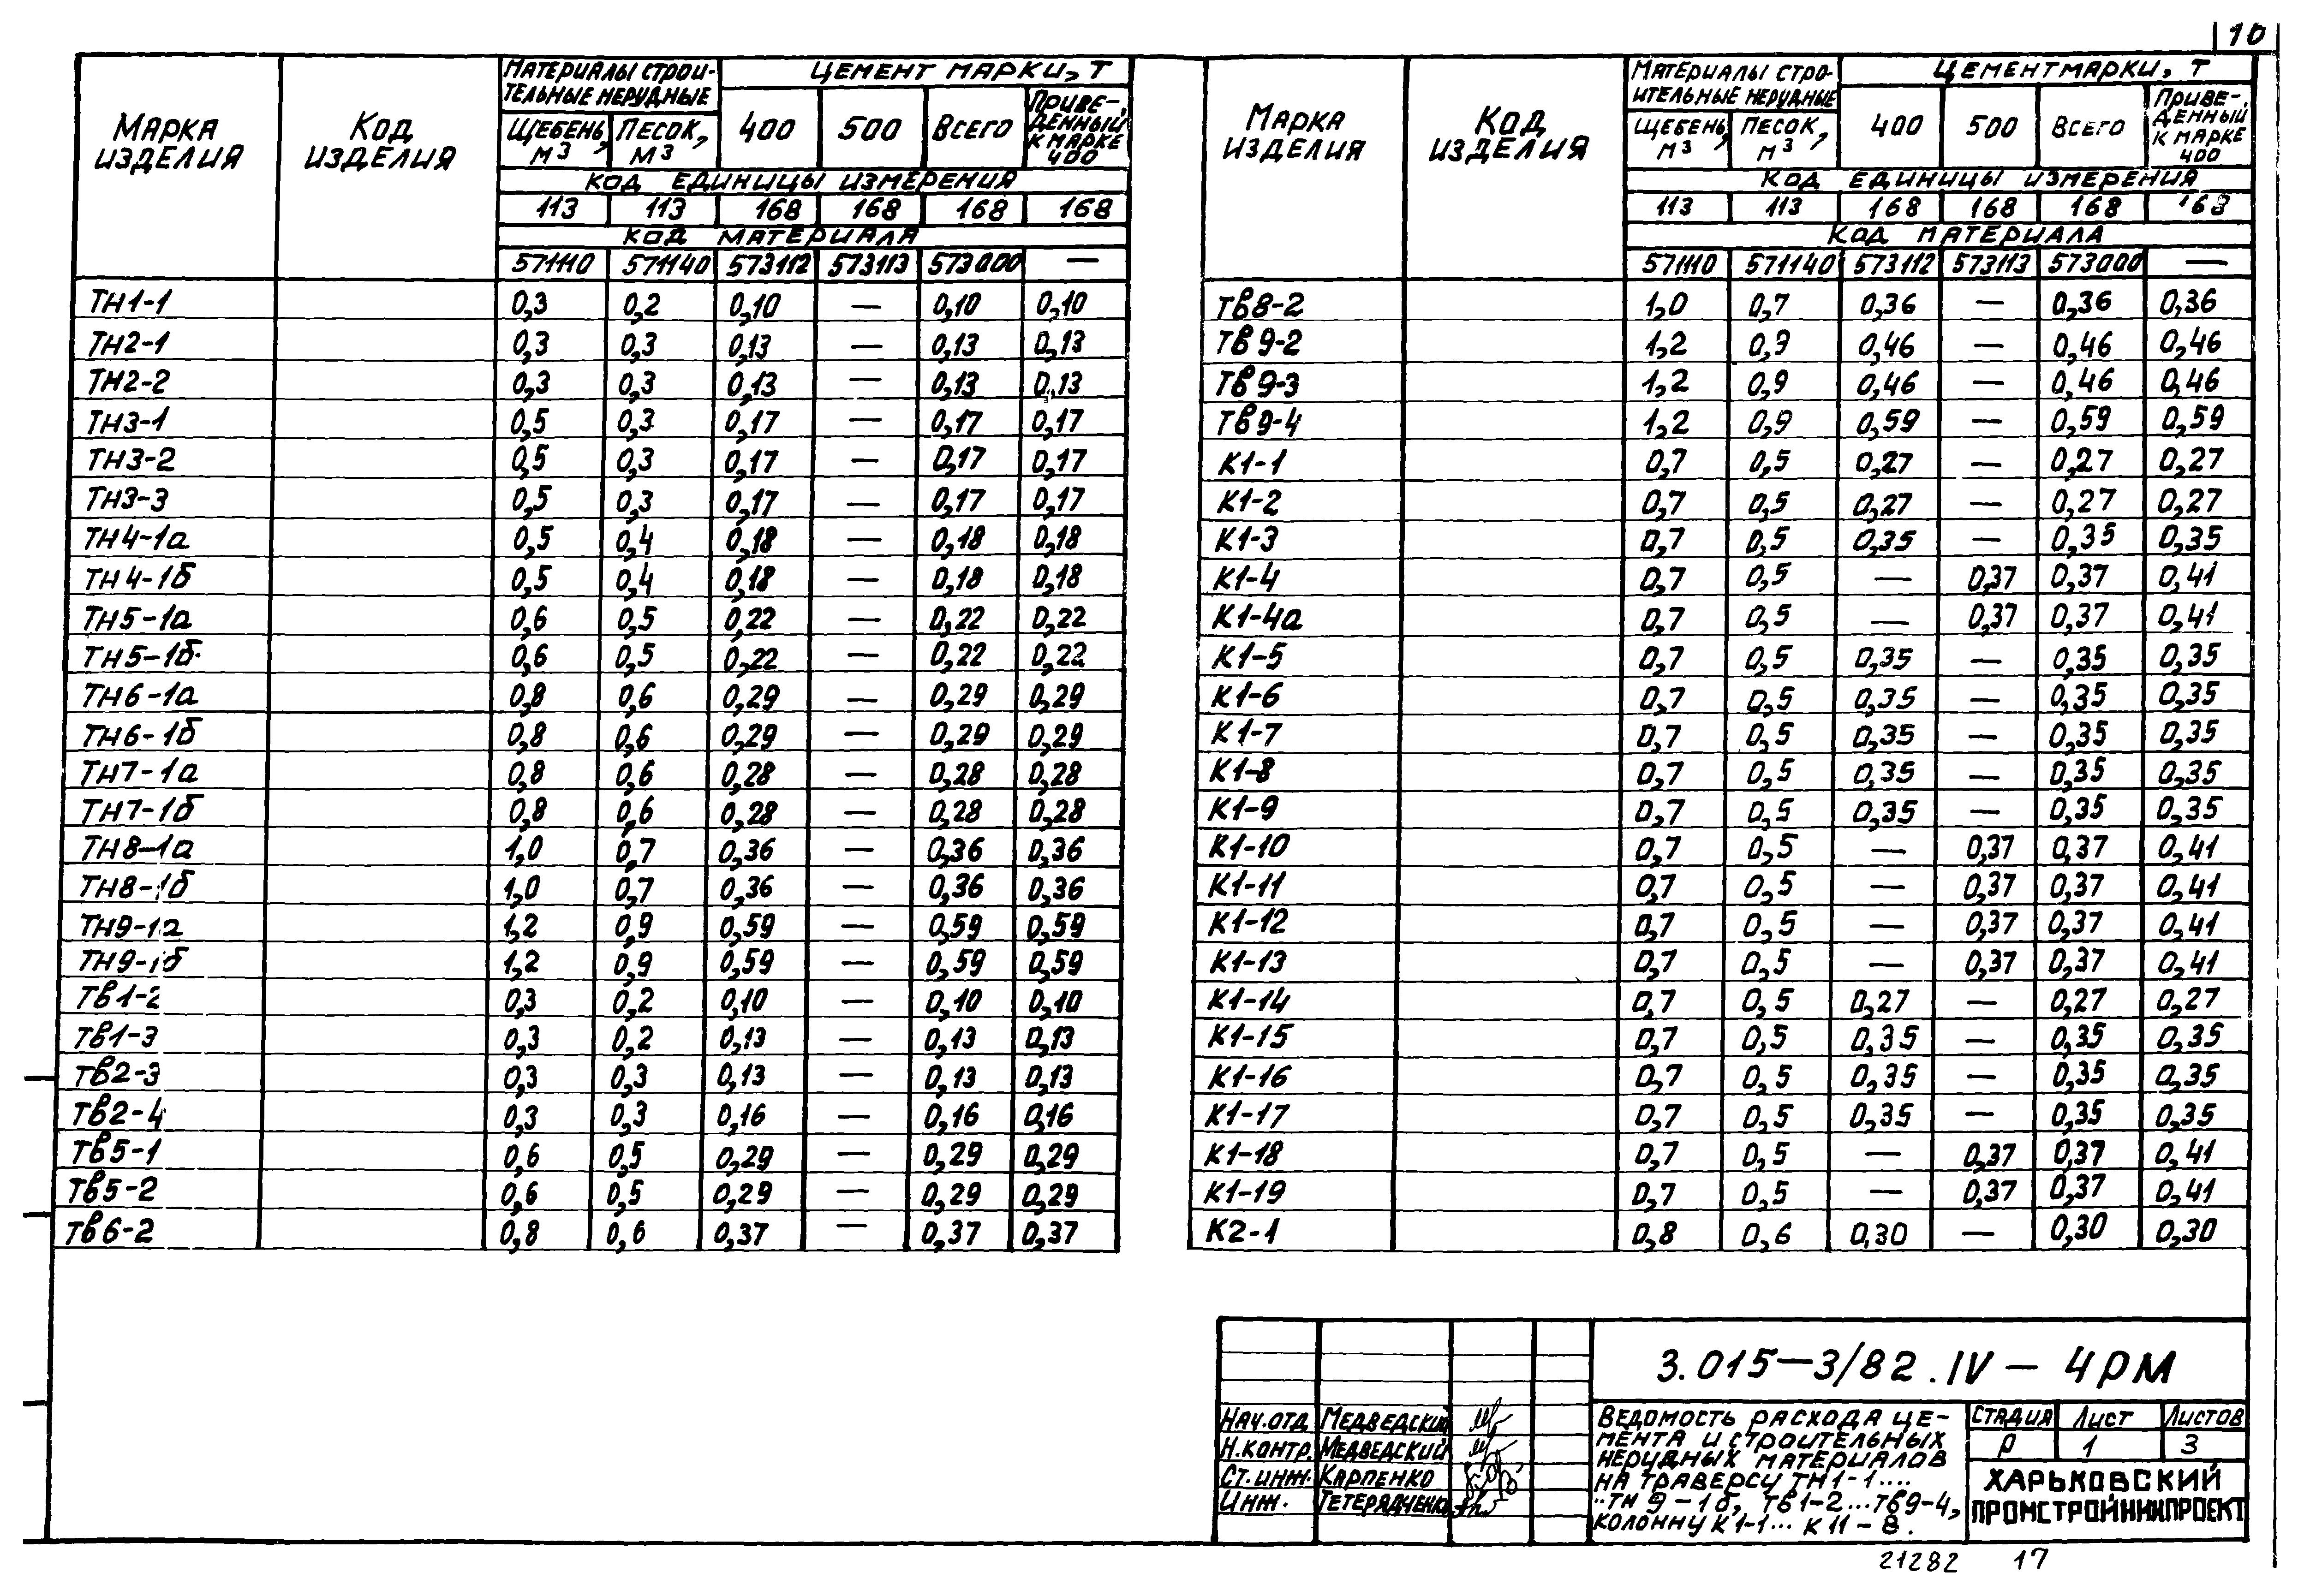 10
МАРКА ИЗДЕЛИЯ | КОД ИЗДЕЛИЯ | МАТЕРИАЛЫ СТРОИ-ТЕЛЬНЫЕ НЕРУДНЫЕ | ЦЕМЕНТ МАРКИ, Т
ЩЕБЕНЬ, М³ | ПЕСОК, М³ | 400 | 500 | ВСЕГО | ПРИВЕ-ДЕННЫЙ К МАРКЕ 400
КОД ЕДИНИЦЫ ИЗМЕРЕНИЯ
113 | 113 | 168 | 168 | 168 | 168
КОД МАТЕРИАЛА
571110 | 571140 | 573112 | 573113 | 573000 | —
ТН1-1 | 0,3 | 0,2 | 0,10 | — | 0,10 | 0,10
ТН2-1 | 0,3 | 0,3 | 0,13 | — | 0,13 | 0,13
ТН2-2 | 0,3 | 0,3 | 0,13 | — | 0,13 | 0,13
ТН3-1 | 0,5 | 0,3 | 0,17 | — | 0,17 | 0,17
ТН3-2 | 0,5 | 0,3 | 0,17 | — | 0,17 | 0,17
ТН3-3 | 0,5 | 0,3 | 0,17 | — | 0,17 | 0,17
ТН4-1а | 0,5 | 0,4 | 0,18 | — | 0,18 | 0,18
ТН4-1б | 0,5 | 0,4 | 0,18 | — | 0,18 | 0,18
ТН5-1а | 0,6 | 0,5 | 0,22 | — | 0,22 | 0,22
ТН5-1б | 0,6 | 0,5 | 0,22 | — | 0,22 | 0,22
ТН6-1а | 0,8 | 0,6 | 0,29 | — | 0,29 | 0,29
ТН6-1б | 0,8 | 0,6 | 0,29 | — | 0,29 | 0,29
ТН7-1а | 0,8 | 0,6 | 0,28 | — | 0,28 | 0,28
ТН7-1б | 0,8 | 0,6 | 0,28 | — | 0,28 | 0,28
ТН8-1а | 1,0 | 0,7 | 0,36 | — | 0,36 | 0,36
ТН8-1б | 1,0 | 0,7 | 0,36 | — | 0,36 | 0,36
ТН9-1а | 1,2 | 0,9 | 0,59 | — | 0,59 | 0,59
ТН9-1б | 1,2 | 0,9 | 0,59 | — | 0,59 | 0,59
Тв1-2 | 0,3 | 0,2 | 0,10 | — | 0,10 | 0,10
Тв1-3 | 0,3 | 0,2 | 0,13 | — | 0,13 | 0,13
Тв2-3 | 0,3 | 0,3 | 0,13 | — | 0,13 | 0,13
Тв2-4 | 0,3 | 0,3 | 0,16 | — | 0,16 | 0,16
Тв5-1 | 0,6 | 0,5 | 0,29 | — | 0,29 | 0,29
Тв5-2 | 0,6 | 0,5 | 0,29 | — | 0,29 | 0,29
Тв6-2 | 0,8 | 0,6 | 0,37 | — | 0,37 | 0,37
МАРКА ИЗДЕЛИЯ | КОД ИЗДЕЛИЯ | МАТЕРИАЛЫ СТРО-ИТЕЛЬНЫЕ НЕРУДНЫЕ | ЦЕМЕНТ МАРКИ, Т
ЩЕБЕНЬ, М³ | ПЕСОК, М³ | 400 | 500 | ВСЕГО | ПРИВЕ-ДЕННЫЙ К МАРКЕ 400
КОД ЕДИНИЦЫ ИЗМЕРЕНИЯ
113 | 113 | 168 | 168 | 168 | 168
КОД МАТЕРИАЛА
571110 | 571140 | 573112 | 573113 | 573000 | —
Тв8-2 | 1,0 | 0,7 | 0,36 | — | 0,36 | 0,36
Тв9-2 | 1,2 | 0,9 | 0,46 | — | 0,46 | 0,46
Тв9-3 | 1,2 | 0,9 | 0,46 | — | 0,46 | 0,46
Тв9-4 | 1,2 | 0,9 | 0,59 | — | 0,59 | 0,59
К1-1 | 0,7 | 0,5 | 0,27 | — | 0,27 | 0,27
К1-2 | 0,7 | 0,5 | 0,27 | — | 0,27 | 0,27
К1-3 | 0,7 | 0,5 | 0,35 | — | 0,35 | 0,35
К1-4 | 0,7 | 0,5 | — | 0,37 | 0,37 | 0,41
К1-4а | 0,7 | 0,5 | — | 0,37 | 0,37 | 0,41
К1-5 | 0,7 | 0,5 | 0,35 | — | 0,35 | 0,35
К1-6 | 0,7 | 0,5 | 0,35 | — | 0,35 | 0,35
К1-7 | 0,7 | 0,5 | 0,35 | — | 0,35 | 0,35
К1-8 | 0,7 | 0,5 | 0,35 | — | 0,35 | 0,35
К1-9 | 0,7 | 0,5 | 0,35 | — | 0,35 | 0,35
К1-10 | 0,7 | 0,5 | — | 0,37 | 0,37 | 0,41
К1-11 | 0,7 | 0,5 | — | 0,37 | 0,37 | 0,41
К1-12 | 0,7 | 0,5 | — | 0,37 | 0,37 | 0,41
К1-13 | 0,7 | 0,5 | — | 0,37 | 0,37 | 0,41
К1-14 | 0,7 | 0,5 | 0,27 | — | 0,27 | 0,27
К1-15 | 0,7 | 0,5 | 0,35 | — | 0,35 | 0,35
К1-16 | 0,7 | 0,5 | 0,35 | — | 0,35 | 0,35
К1-17 | 0,7 | 0,5 | 0,35 | — | 0,35 | 0,35
К1-18 | 0,7 | 0,5 | — | 0,37 | 0,37 | 0,41
К1-19 | 0,7 | 0,5 | — | 0,37 | 0,37 | 0,41
К2-1 | 0,8 | 0,6 | 0,30 | — | 0,30 | 0,30
3.015-3/82.IV-4РМ
НАЧ.ОТД МЕДВЕДСКИЙ
Н.КОНТР. МЕДВЕДСКИЙ
СТ.ИНЖ. КАРПЕНКО
ИНЖ. ТЕТЕРЯДЧЕНКО
ВЕДОМОСТЬ РАСХОДА ЦЕ-
МЕНТА И СТРОИТЕЛЬНЫХ
НЕРУДНЫХ МАТЕРИАЛОВ
НА ТРАВЕРСУ ТН1-1....
..ТН9-1б, Тв1-2...Тв9-4,
КОЛОННУ К1-1... К11-8.
СТАДИЯ ЛИСТ ЛИСТОВ
Р 1 3
ХАРЬКОВСКИЙ
ПРОМСТРОЙНИИПРОЕКТ
21282 17